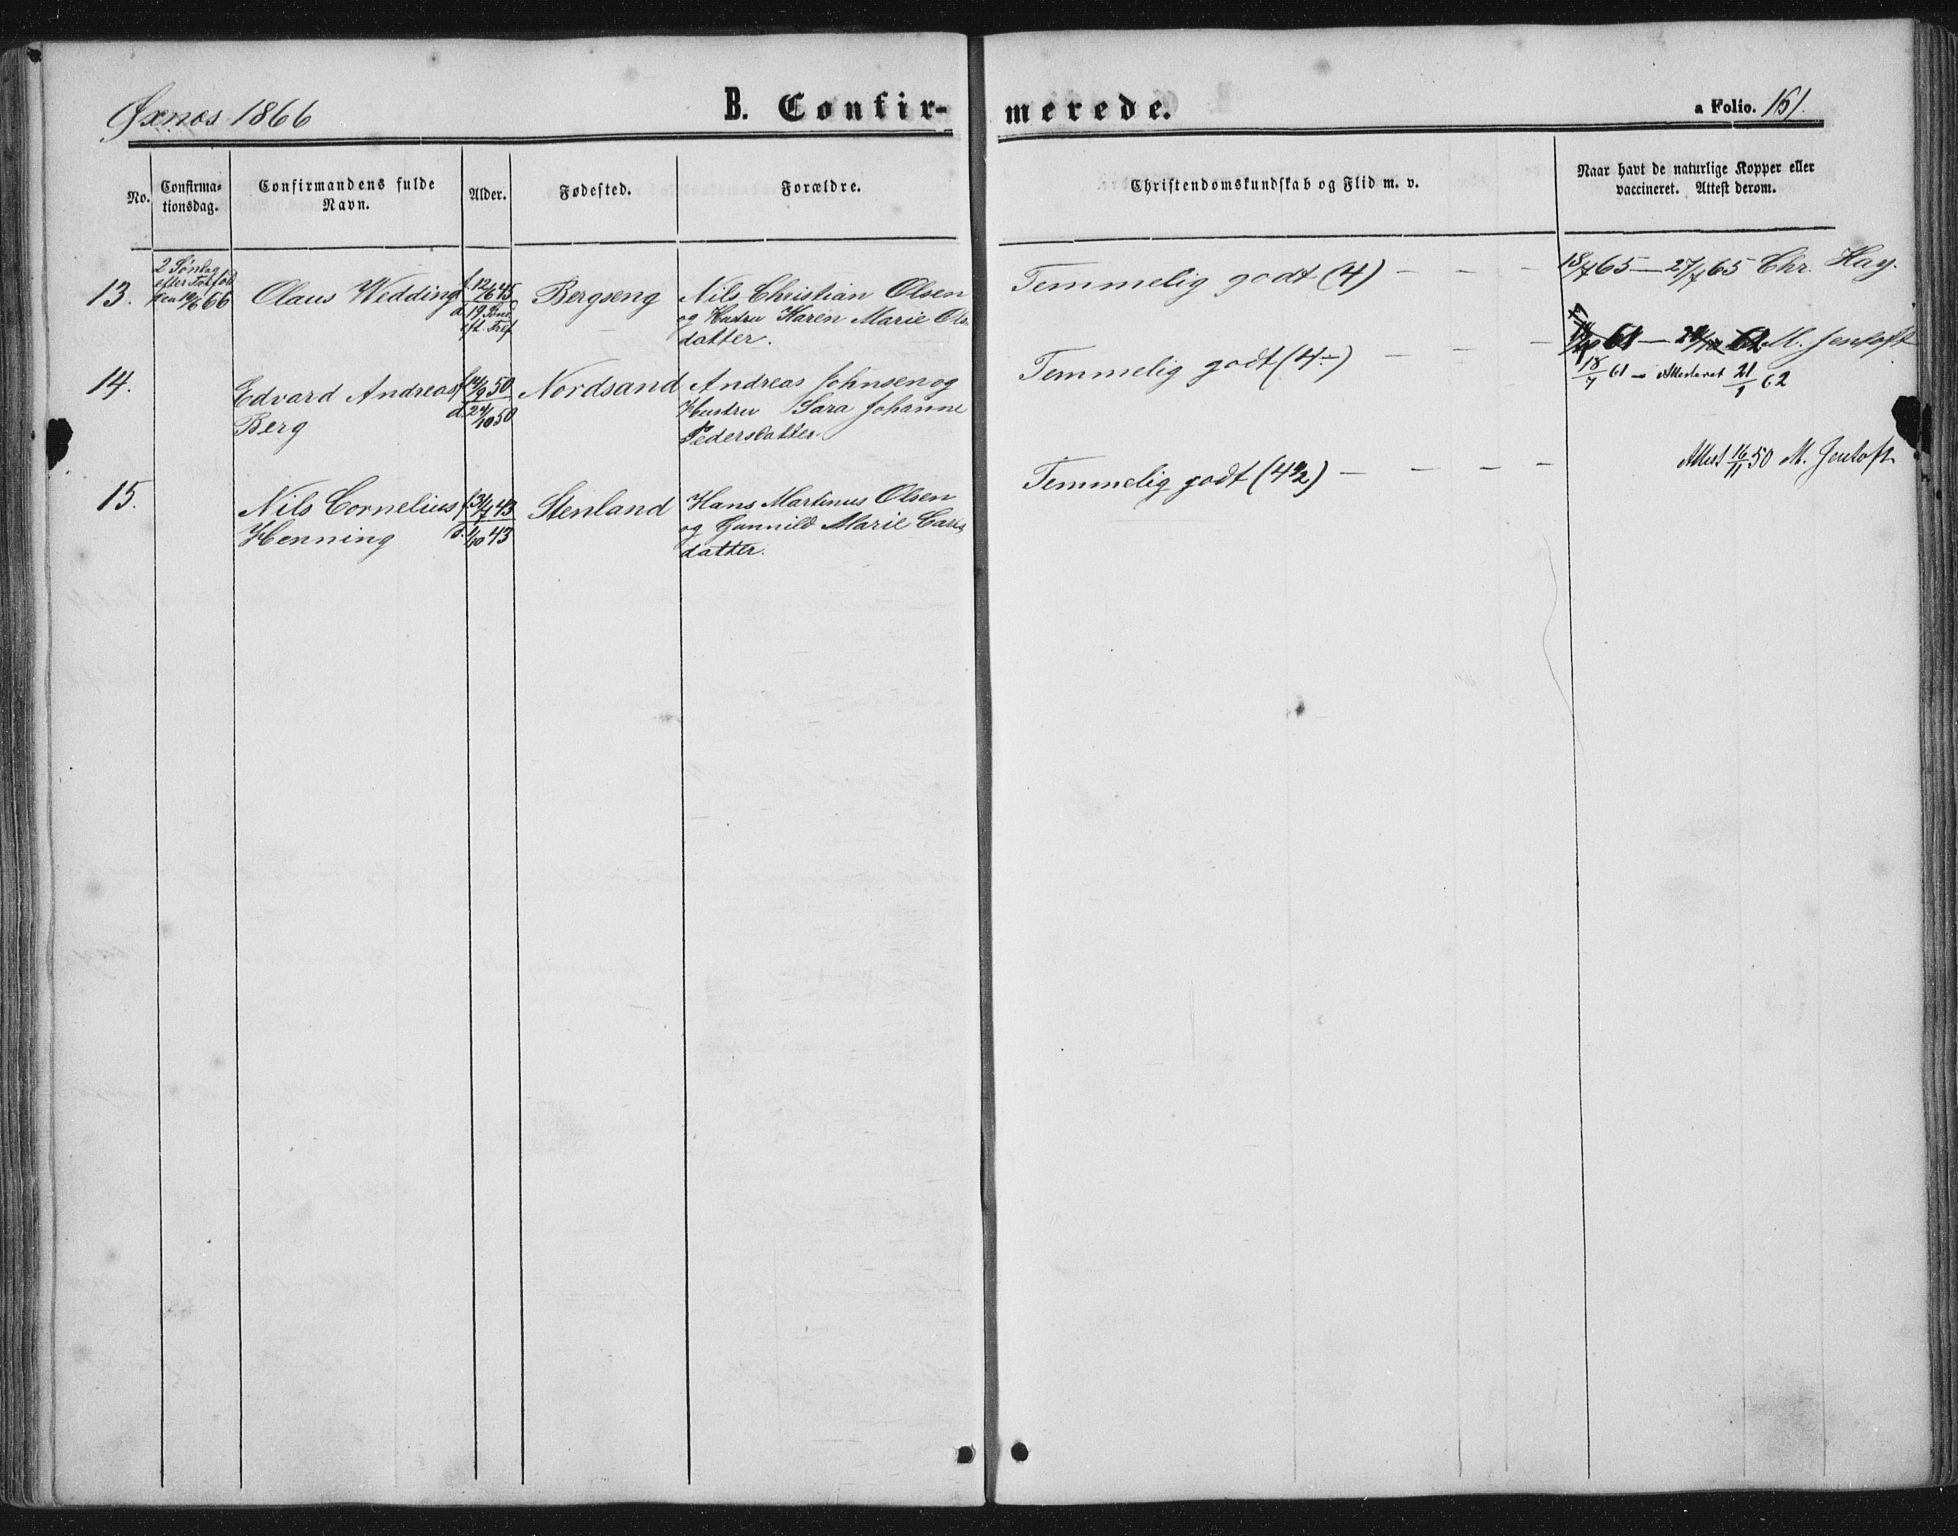 Øxnes 1866
B. Confir-
merede.
a Folio. 161.
No.
Confirma-
tionsdag.
Confirmandens fulde
Navn.
Alder.
Fødested.
Forældre.
Christendomskundskab og Flid m. v.
Naar havt de naturlige Kopper eller
vaccineret. Attest derom.
13.
2 Søndag
efter
66
Olaus Wedding
f. 12/6 45
d. 19 Sønd
eft. Tref
Bergseng
Nils Christian Olsen
og Hustru Karen Marie Ols
datter.
Temmelig godt (4) — — — —
18/7 65 — 27/7 65 Chr. Hay.
14.
Edvard Andreas
Berg
50
d. 24/10 50
Nordsand
Andreas Johnsen og
Hustru Sara Johanne
Pedersdatter
Temmelig godt (4-) — — — —
61 — 62 M. Jentoft
18/7 61 — Attesteret 21/1 62
15.
Nils Cornelius
Henning
f. 31/7 43
d. 1/10 43
Stenland
Hans Martinus Olsen
og Gunnild Marie Carls
datter.
Temmelig godt (4½) — — — —
Attest 16/11 50 M. Jentoft